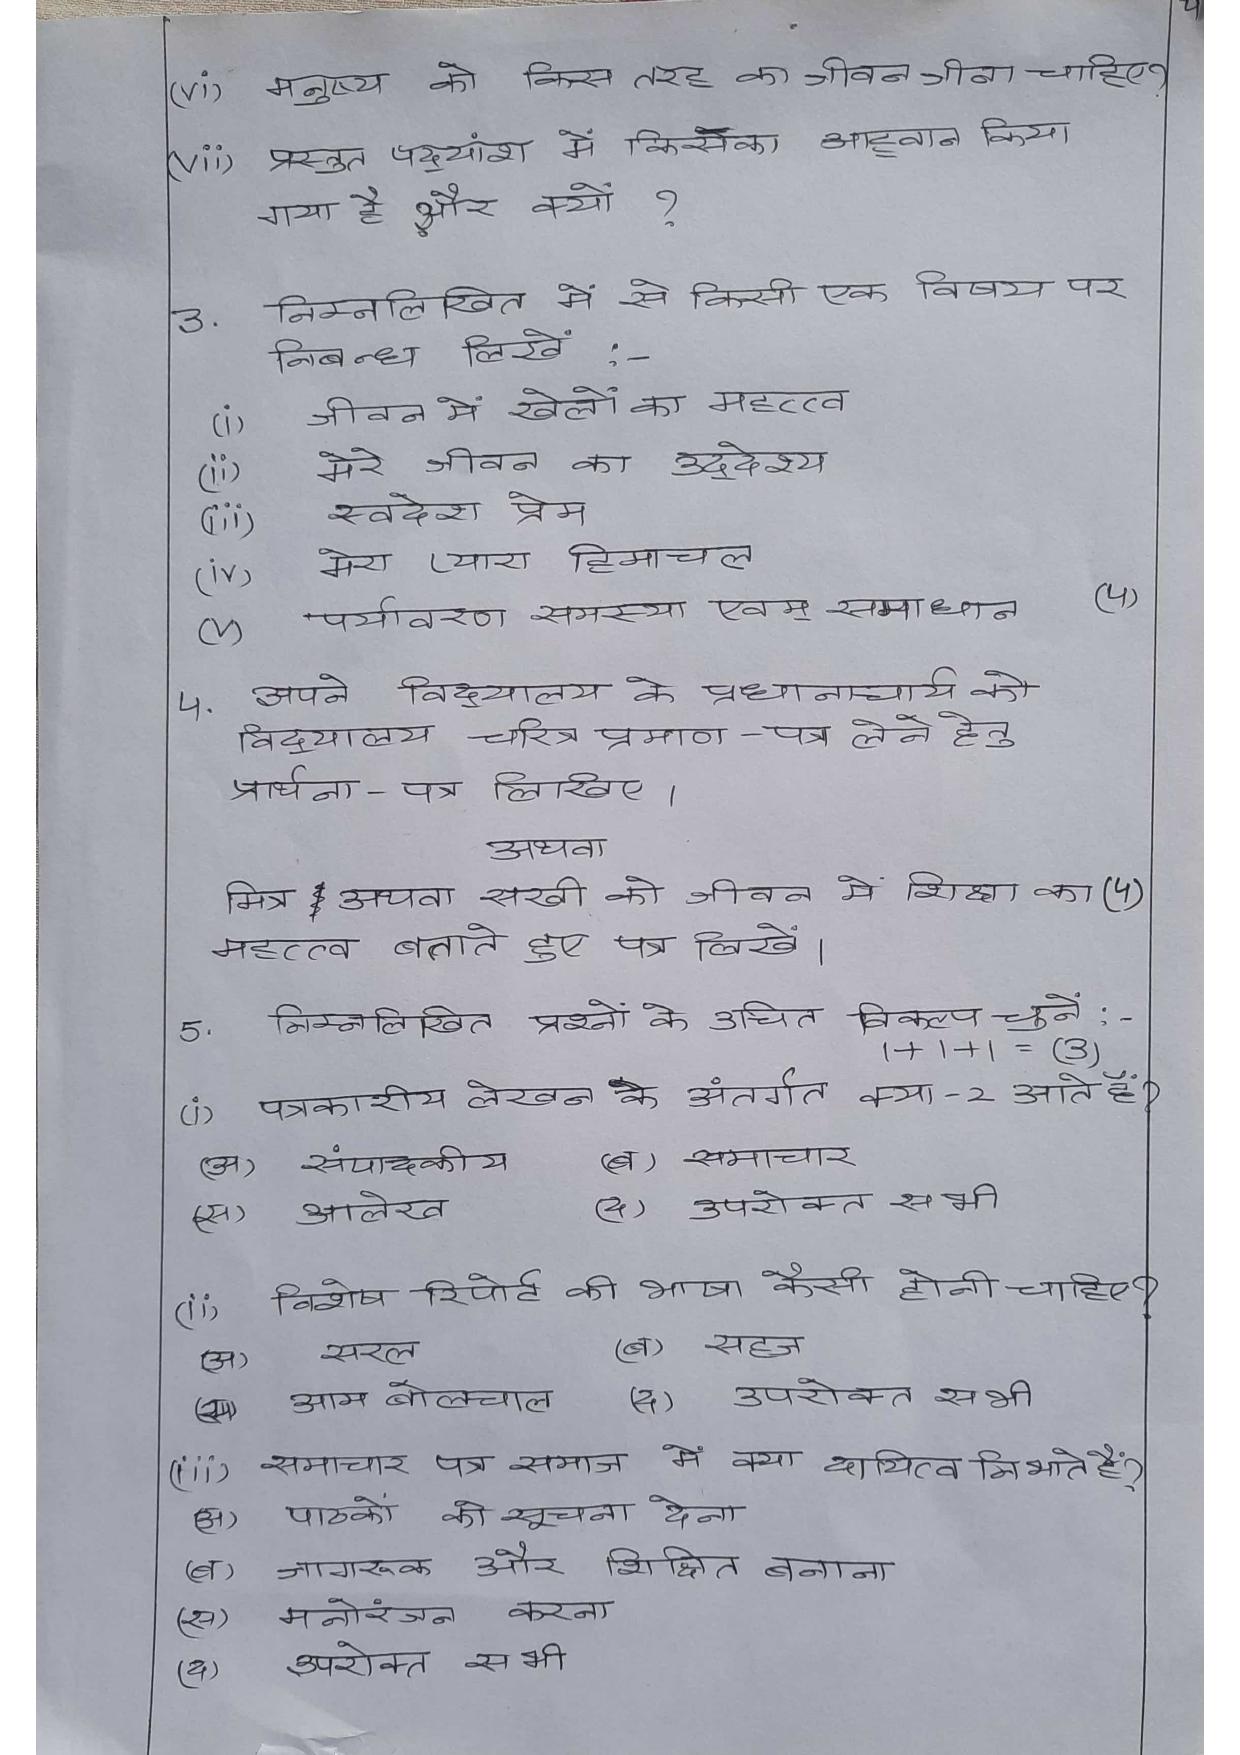 4
(vi) मनुष्य को किस तरह का जीवन जीना चाहिए?
(vii) प्रस्तुत पद्यांश में किसका आह्वान किया
गया है और क्यों ?
3. निम्नलिखित में से किसी एक विषय पर
निबन्ध लिखें :-
(i) जीवन में खेलों का महत्त्व
(ii) मेरे जीवन का उद्देश्य
(iii) स्वदेश प्रेम
(iv) मेरा प्यारा हिमाचल
(v) पर्यावरण समस्या एवम् समाधान (5)
4. अपने विद्यालय के प्रधानाचार्य को
विद्यालय चरित्र प्रमाण-पत्र लेने हेतु
प्रार्थना-पत्र लिखिए।
अथवा
मित्र अथवा सखी को जीवन में शिक्षा का (5)
महत्त्व बताते हुए पत्र लिखें।
5. निम्नलिखित प्रश्नों के उचित विकल्प चुनें :-
1+1+1 = (3)
(i) पत्रकारीय लेखन के अंतर्गत क्या-2 आते हैं?
(अ) संपादकीय (ब) समाचार
(स) आलेख (द) उपरोक्त सभी
(ii) विशेष रिपोर्ट की भाषा कैसी होनी चाहिए?
(अ) सरल (ब) सहज
(स) आम बोलचाल (द) उपरोक्त सभी
(iii) समाचार पत्र समाज में क्या दायित्व निभाते हैं?
(अ) पाठकों को सूचना देना
(ब) जागरूक और शिक्षित बनाना
(स) मनोरंजन करना
(द) उपरोक्त सभी